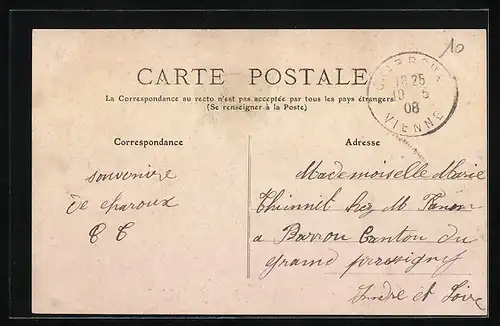 10
CHARROUX
18 25
19 5
08
VIENNE
CARTE POSTALE
La Correspondance au recto n'est pas acceptée par tous les pays étrangers
(Se renseigner à la Poste)
Correspondance
souvenire
de charoux
Adresse
Mademoiselle Marie
Thinnit chez M
a Barrou Canton du
grand pressigny
Indre et Loire